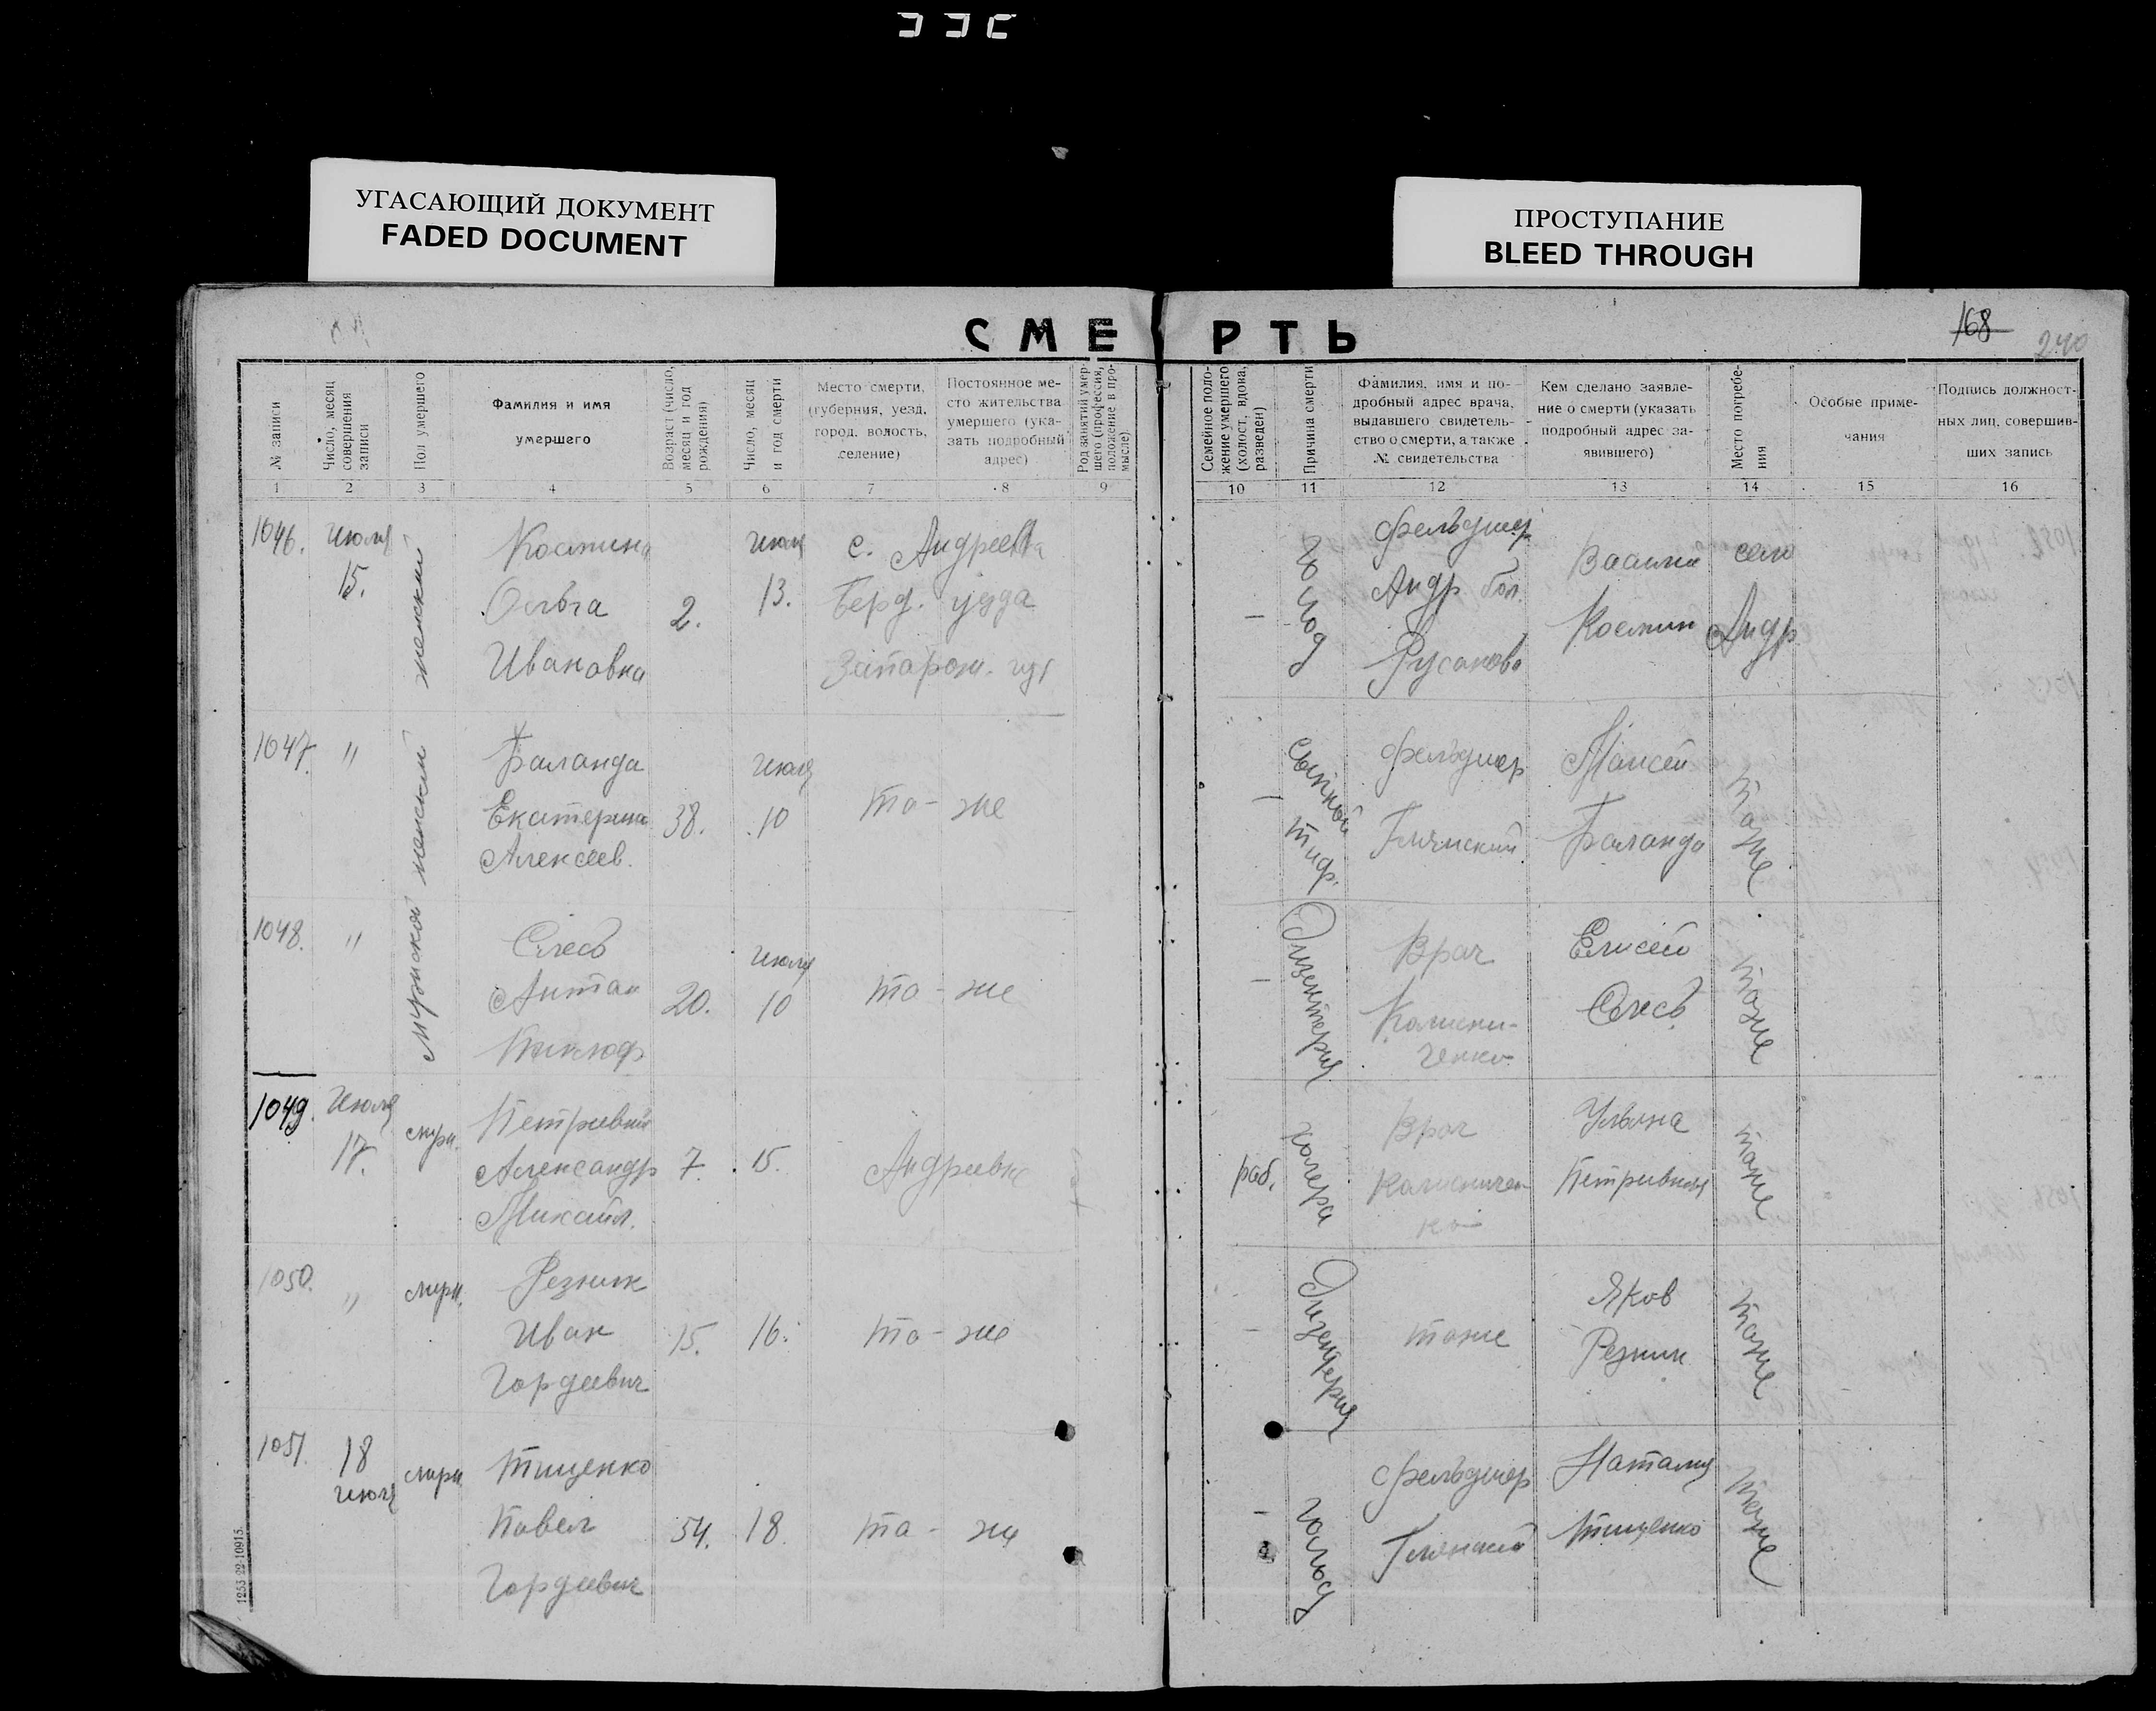 УГАСАЮЩИЙ ДОКУМЕНТ
FADED DOCUMENT
ПРОСТУПАНИЕ
BLEED THROUGH
СМЕРТЬ
168
240
№ записи
Число, месяц
совершения
записи
Пол умершего
Фамилия и имя
умершего
Возраст (число,
месяц и год
рождения)
Число, месяц
и год смерти
Место смерти,
(губерния, уезд,
город, волость,
селение)
Постоянное ме-
сто жительства
умершего (ука-
зать подробный
адрес)
Род занятий умер-
шего (профессия,
положение в про-
мысле)
Семейное поло-
жение умершего
(холост, вдова,
разведен)
Причина смерти
Фамилия, имя и по-
дробный адрес врача,
выдавшего свидетель-
ство о смерти, а также
№ свидетельства
Кем сделано заявле-
ние о смерти (указать
подробный адрес за-
явившего)
Место погребе-
ния
Особые приме-
чания
Подпись должност-
ных лиц, совершив-
ших запись
1 2 3 4 5 6 7 8 9 10 11 12 13 14 15 16
1046.
июля
15.
женский
Костина
Ольга
Ивановна
2.
июля
13.
с. Андреевка
Берд. уезда
Запорож. губ
–
голод
Фельдшер
Андр. бол.
Русаково
Василий
Костин
село
Андр.
1047.
"
женский
Баланда
Екатерина
Алексеев.
38.
июля
10
то-же
–
сыпной
тиф.
Фельдшер
Моисей
Баланда
тоже
1048.
"
мужской
Слесь
Антон
20.
июля
10
то-же
–
Дизентерия
Врач
Колесни-
ченко
Елисей
Слесь
тоже
1049.
июля
17.
муж.
Петривний
Александр
Михайл.
7
15.
Андреевка
раб.
холера
Врач
Колесничен
ко
Ульяна
Петривная
тоже
1050.
"
муж.
Резник
Иван
Гордеевич
15.
16.
то-же
–
Дизентерия
тоже
Яков
Резник
тоже
1051.
18
июля
муж.
Тищенко
Павел
Гордеевич
54.
18.
то-же
–
голод
Фельдшер
Наталия
Тищенко
тоже
1253-22-10915.